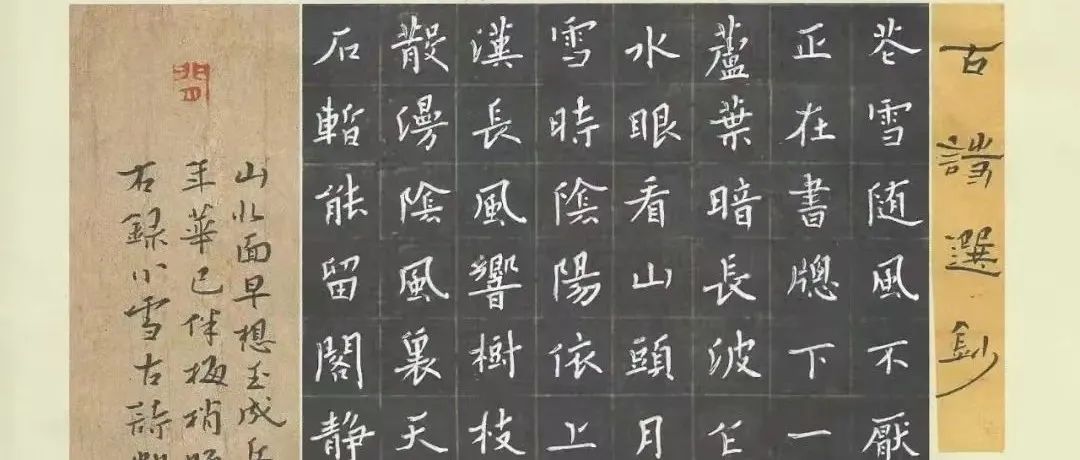 古詩選鈔
花雪随風不厭
正在書牕下一
蘆葉暗長波
水眼看山頭月
雪時陰陽依上
漢長風響樹枝
散漫陰風裏天
石暫能留閣静
山水面早想玉成
年華已伴梅梢
右録小雪古詩